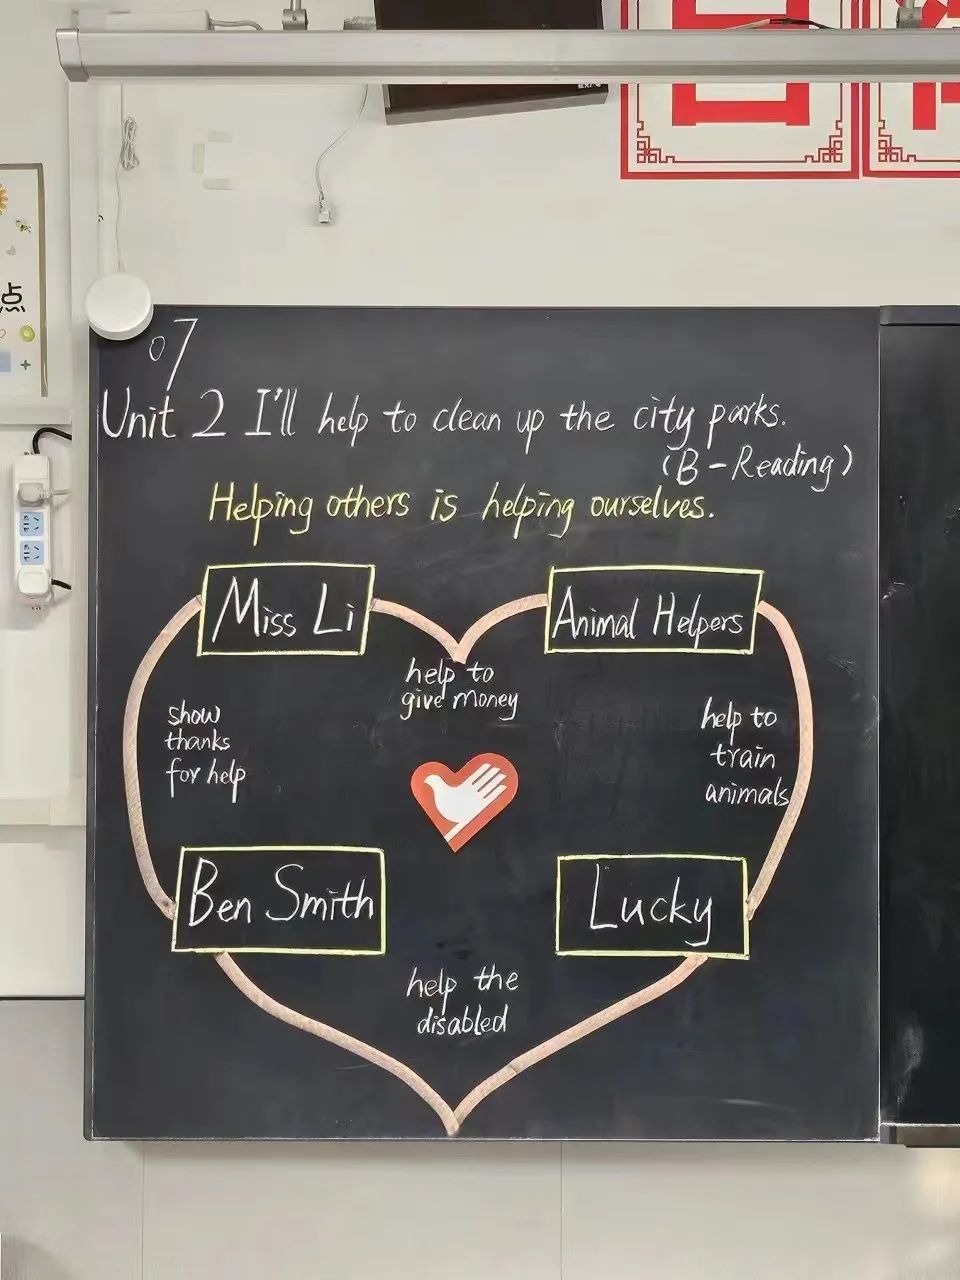 点
07
Unit 2 I'll help to clean up the city parks.
(B-Reading)
Helping others is helping ourselves.
Miss Li
Animal Helpers
help to
give money
show
thanks
for help
help to
train
animals
Ben Smith
Lucky
help the
disabled